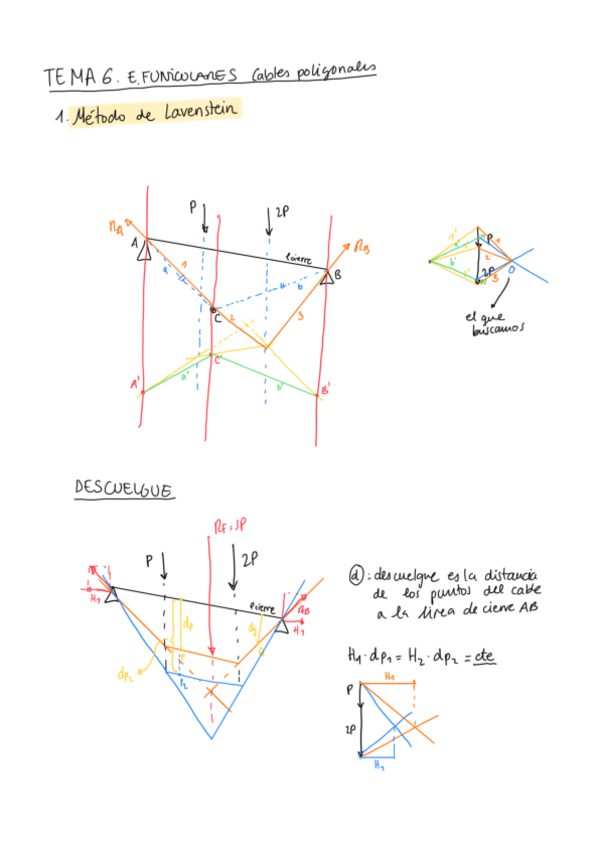 TEMA 6. E. FUNICULARES Cables poligonales
1. Método de Lavenstein
P
2P
RA
A
RB
l cierre
B
1
a
b
2
3
C
C'
A'
a'
b'
B'
1'
a'
b'
P
1
2
2P
3
O
el que
buscamos
DESCUELGUE
RF=3P
P
2P
l cierre
RB
H1
H1
dp
dp2
P2
ⓓ: descuelgue es la distancia
de los puntos del cable
a la línea de cierre AB
H1·dp1 = H2·dp2 = cte
H1
P
2P
H1